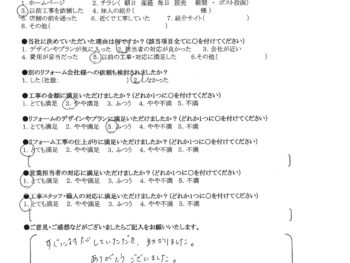 1. ホームページ 2. チラシ( 朝日 産経 毎日 読売 新聞 ・ ポスト投函)
3. 以前工事を依頼した 4. 知人の紹介( 様 )
5. 店頭の前を通った 6. 近くで工事していた 7. 紹介サイト( )
8. その他( )
●当社に決めていただいた理由は何ですか？(該当項目全てに○を付けてください)
1. デザインやプランが気に入った 2. 担当者の対応が良かった 3. 会社が近い
4. 費用が妥当だった 5. 以前の工事・対応に満足した 6.その他( )
●別のリフォーム会社様への依頼も検討されましたか？
1. した(社数: ) 2. しなかった
●工事の金額に満足いただけましたか？(どれか1つに○を付けてください)
1. とても満足 2. やや満足 3. ふつう 4. やや不満 5. 不満
●リフォームのデザインやプランに満足いただけましたか？(どれか1つに○を付けてください)
1. とても満足 2. やや満足 3. ふつう 4. やや不満 5. 不満
●リフォーム工事の仕上がりに満足いただけましたか？(どれか1つに○を付けてください)
1. とても満足 2. やや満足 3. ふつう 4. やや不満 5. 不満
●営業担当者の対応に満足いただけましたか？(どれか1つに○を付けてください)
1. とても満足 2. やや満足 3. ふつう 4. やや不満 5. 不満
●工事スタッフ・職人の対応に満足いただけましたか？(どれか1つに○を付けてください)
1. とても満足 2. やや満足 3. ふつう 4. やや不満 5. 不満
●ご意見・ご感想などがございましたらご記入をお願いいたします。
すぐに対応していただき、助かりました。
ありがとうございました。